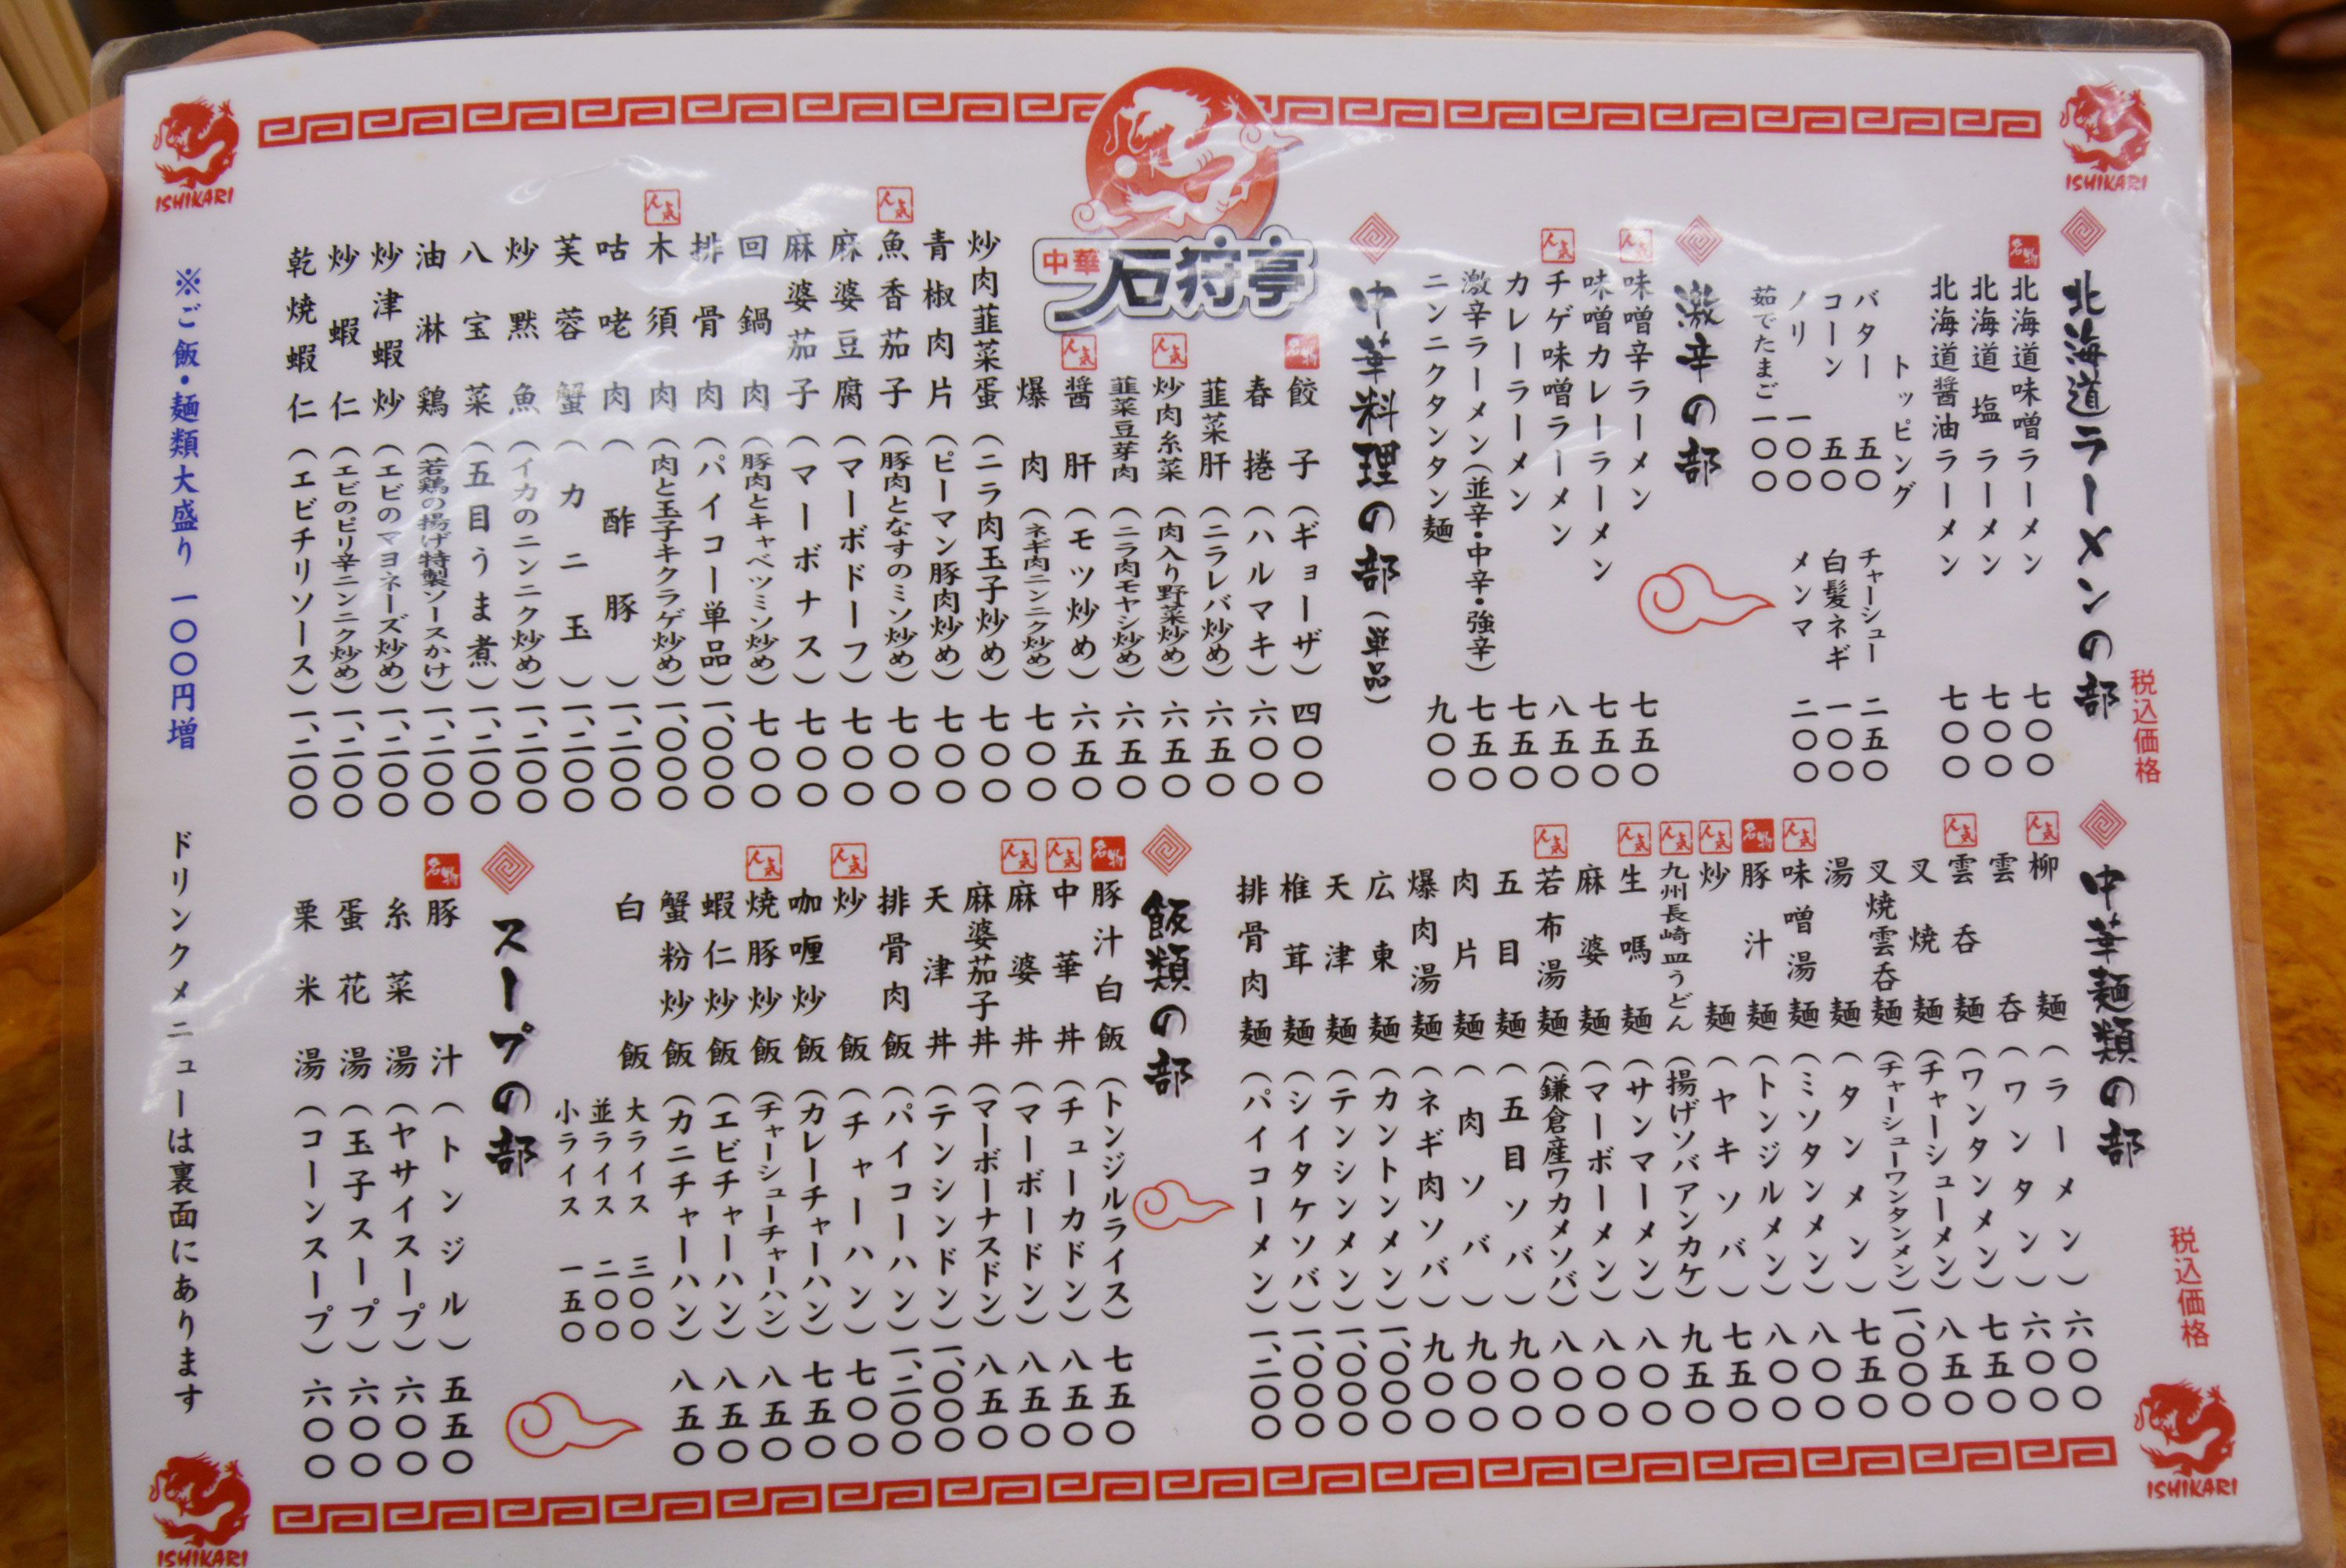 北海道ラーメンの部
税込価格
名物 北海道味噌ラーメン 七〇〇
北海道 塩 ラーメン 七〇〇
北海道醤油ラーメン 七〇〇
トッピング
バター 五〇
コーン 五〇
ノリ 一〇〇
茹でたまご 一〇〇
チャーシュー 二五〇
白髪ネギ 一〇〇
メンマ 二〇〇
激辛の部
人気 味噌辛ラーメン 七五〇
味噌カレーラーメン 七五〇
人気 チゲ味噌ラーメン 八五〇
カレーラーメン 七五〇
激辛ラーメン(並辛・中辛・強辛) 七五〇
ニンニクタンタン麺 九〇〇
中華料理の部(単品)
中華 石狩亭
名物 餃子(ギョーザ) 四〇〇
春捲(ハルマキ) 六〇〇
韮菜肝(ニラレバ炒め) 六五〇
人気 炒肉糸菜(肉入り野菜炒め) 六五〇
韮菜豆芽肉(ニラ肉モヤシ炒め) 六五〇
人気 醤肝(モツ炒め) 六五〇
爆肉(ネギ肉ニンニク炒め) 七〇〇
炒肉韮菜蛋(ニラ肉玉子炒め) 七〇〇
青椒肉片(ピーマン豚肉炒め) 七〇〇
人気 魚香茄子(豚肉となすのミソ炒め) 七〇〇
麻婆豆腐(マーボドーフ) 七〇〇
麻婆茄子(マーボナス) 七〇〇
回鍋肉(豚肉とキャベツミソ炒め) 七〇〇
排骨肉(パイコー単品) 一、〇〇〇
人気 木須肉(肉と玉子キクラゲ炒め) 一、〇〇〇
咕咾肉(酢豚) 一、二〇〇
芙蓉蟹(カニ玉) 一、二〇〇
炒黙魚(イカのニンニク炒め) 一、二〇〇
八宝菜(五目うま煮) 一、二〇〇
油淋鶏(若鶏の揚げ特製ソースかけ) 一、二〇〇
炒津蝦炒(エビのマヨネーズ炒め) 一、二〇〇
炒蝦仁(エビのピリ辛ニンニク炒め) 一、二〇〇
乾焼蝦仁(エビチリソース) 一、二〇〇
中華麺類の部
税込価格
人気 柳麺(ラーメン) 六〇〇
雲呑(ワンタン) 六〇〇
人気 雲呑麺(ワンタンメン) 七五〇
叉焼麺(チャーシューメン) 八五〇
叉焼雲呑麺(チャーシューワンタンメン) 一、〇〇〇
湯麺(タンメン) 七五〇
人気 味噌湯麺(ミソタンメン) 八〇〇
名物 豚汁麺(トンジルメン) 八〇〇
人気 炒麺(ヤキソバ) 七五〇
人気 九州長崎皿うどん(揚げソバアンカケ) 九五〇
人気 生嗎麺(サンマーメン) 八〇〇
麻婆麺(マーボーメン) 八〇〇
人気 若布湯麺(鎌倉産ワカメソバ) 八〇〇
五目麺(五目ソバ) 九〇〇
肉片麺(肉ソバ) 九〇〇
爆肉湯麺(ネギ肉ソバ) 九〇〇
広東麺(カントンメン) 一、〇〇〇
天津麺(テンシンメン) 一、〇〇〇
椎茸麺(シイタケソバ) 一、〇〇〇
排骨肉麺(パイコーメン) 一、二〇〇
飯類の部
名物 豚汁白飯(トンジルライス) 七五〇
人気 中華丼(チューカドン) 八五〇
人気 麻婆丼(マーボードン) 八五〇
麻婆茄子丼(マーボーナスドン) 八五〇
天津丼(テンシンドン) 一、〇〇〇
排骨肉飯(パイコーハン) 一、二〇〇
人気 炒飯(チャーハン) 七〇〇
咖喱炒飯(カレーチャーハン) 七五〇
人気 焼豚炒飯(チャーシューチャーハン) 八五〇
蝦仁炒飯(エビチャーハン) 八五〇
蟹粉炒飯(カニチャーハン) 八五〇
白飯
大ライス 三〇〇
並ライス 二〇〇
小ライス 一五〇
スープの部
名物 豚汁(トンジル) 五五〇
糸菜湯(ヤサイスープ) 六〇〇
蛋花湯(玉子スープ) 六〇〇
栗米湯(コーンスープ) 六〇〇
※ご飯・麺類大盛り 一〇〇円増
ドリンクメニューは裏面にあります
ISHIKARI
ISHIKARI
ISHIKARI
ISHIKARI